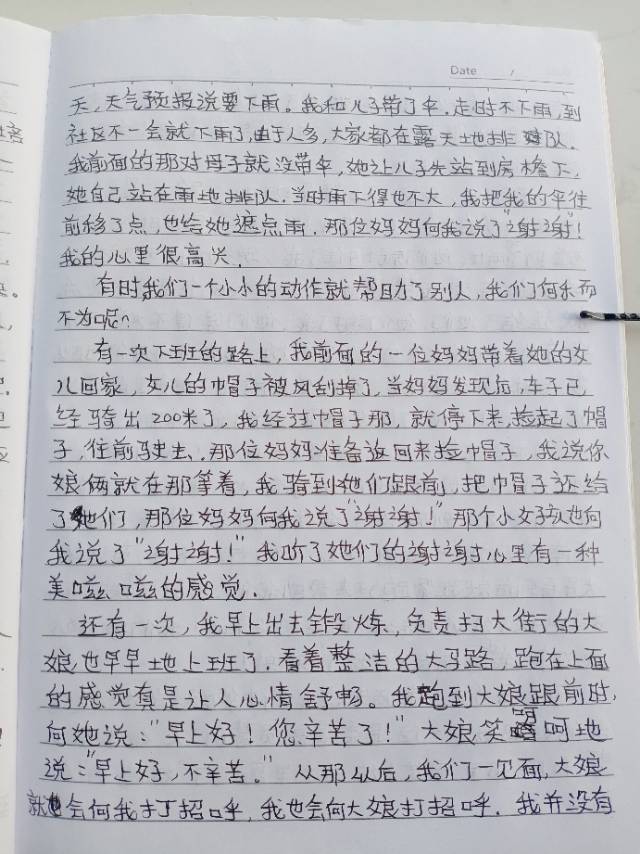 Date /
天,天气预报说要下雨。我和儿子带了伞.走时不下雨,到
社区不一会就下雨了,由于人多,大家都在露天地排队.
我前面的那对母子就没带伞,她让儿子先站到房檐下,
她自己站在雨地排队.当时雨下得也不大,我把我的伞往
前移了点,也给她遮点雨.那位妈妈向我说了"谢谢!
我的心里很高兴.
有时我们一个小小的动作就帮助了别人,我们何乐而
不为呢?
有一次下班的路上,我前面的一位妈妈带着她的女
儿回家,女儿的帽子被风刮掉了,当妈妈发现后,车子已
经骑出200米了,我经过帽子那,就停下来,捡起了帽
子,往前驶去.那位妈妈准备返回来捡帽子,我说你
娘俩就在那等着,我骑到她们跟前,把帽子还给
了她们,那位妈妈向我说了"谢谢!"那个小女孩也向
我说了"谢谢!"我听了她们的谢谢心里有一种
美嗞嗞的感觉.
还有一次,我早上出去锻炼,负责扫大街的大
娘也早早地上班了,看着整洁的大马路,跑在上面
的感觉真是让人心情舒畅。我跑到大娘跟前时,
向她说:"早上好!您辛苦了!"大娘笑呵呵地
说:"早上好,不辛苦。"从那以后,我们一见面,大娘
就会向我打招呼,我也会向大娘打招呼.我并没有